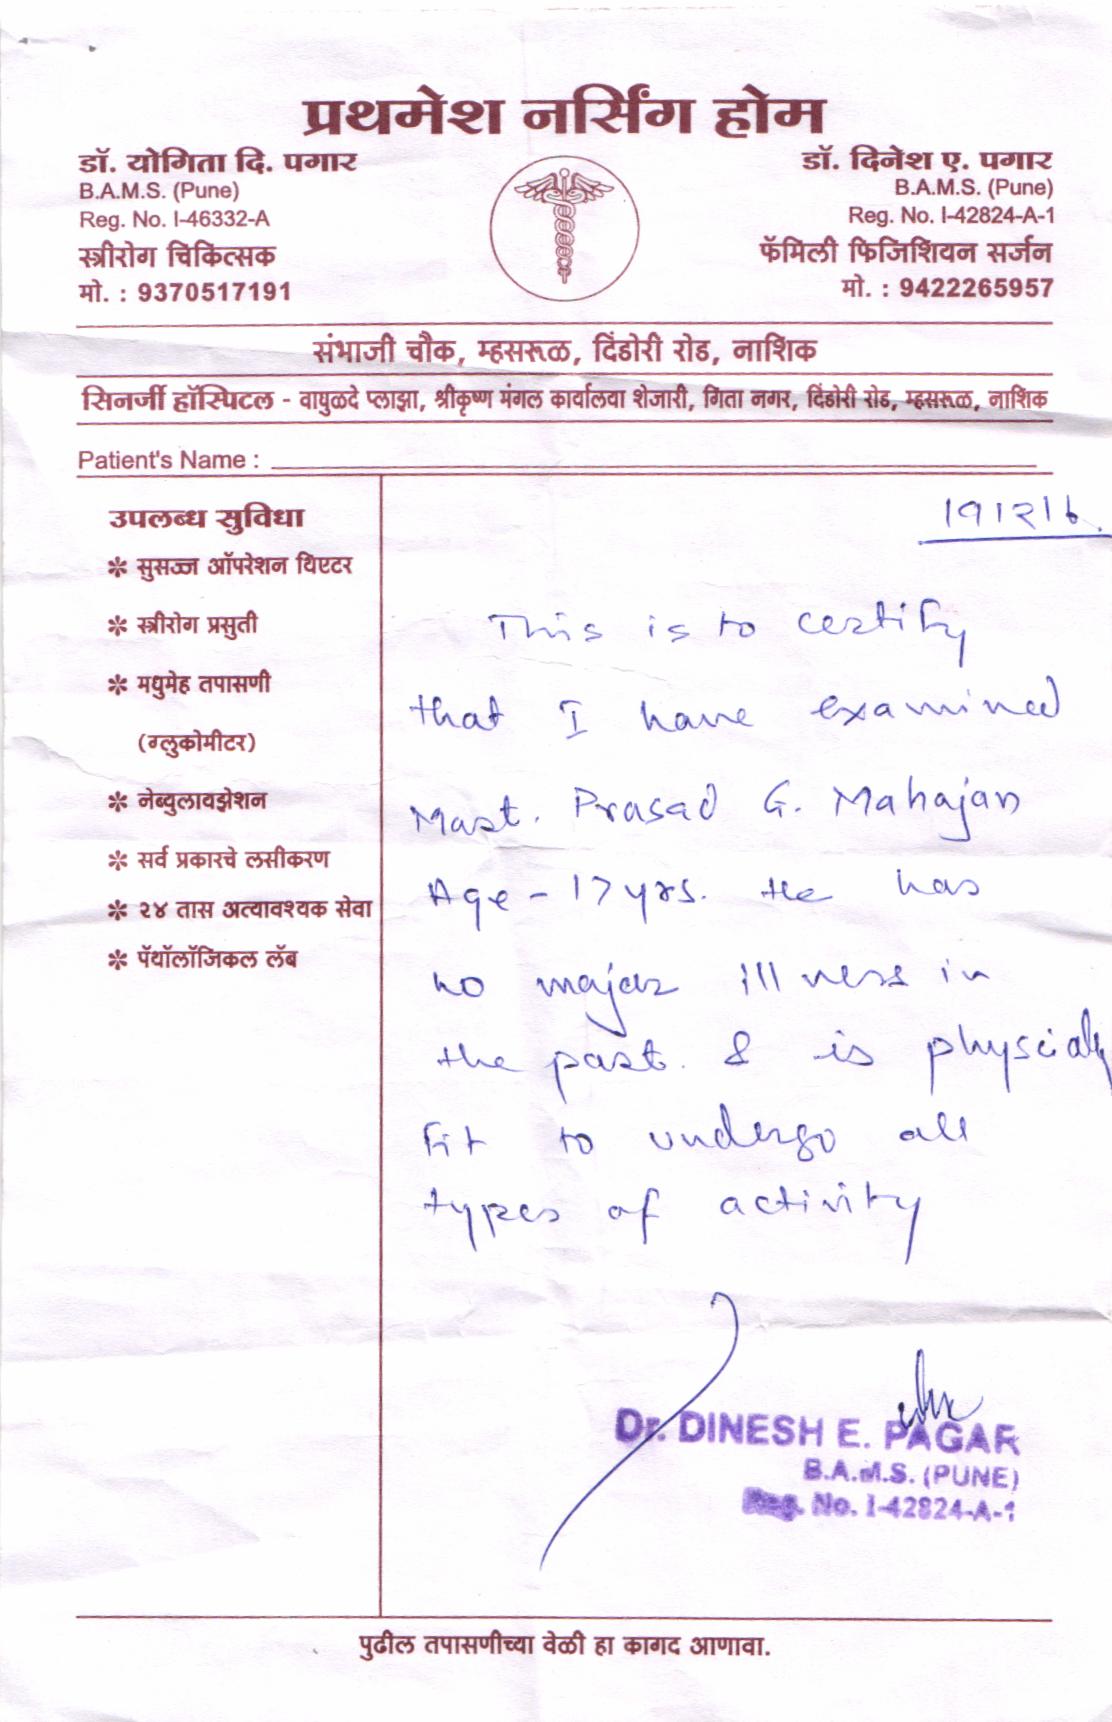 प्रथमेश नर्सिंग होम
डॉ. योगिता दि. पगार
B.A.M.S. (Pune)
Reg. No. I-46332-A
स्त्रीरोग चिकित्सक
मो. : 9370517191
डॉ. दिनेश ए. पगार
B.A.M.S. (Pune)
Reg. No. I-42824-A-1
फॅमिली फिजिशियन सर्जन
मो. : 9422265957
संभाजी चौक, म्हसरूळ, दिंडोरी रोड, नाशिक
सिनर्जी हॉस्पिटल - वाघुळदे प्लाझा, श्रीकृष्ण मंगल कार्यालया शेजारी, गिता नगर, दिंडोरी रोड, म्हसरूळ, नाशिक
Patient's Name :
उपलब्ध सुविधा
* सुसज्ज ऑपरेशन थिएटर
* स्त्रीरोग प्रसुती
* मधुमेह तपासणी
(ग्लुकोमीटर)
* नेब्युलायझेशन
* सर्व प्रकारचे लसीकरण
* २४ तास अत्यावश्यक सेवा
* पॅथॉलॉजिकल लॅब
This is to certify
that I have examined
Mast. Prasad G. Mahajan
Age - 17 yrs. He has
no major illness in
the past. & is physicaly
fit to undergo all
types of activity
Dr. DINESH E. PAGAR
B.A.M.S. (PUNE)
Reg. No. I-42824-A-1
पुढील तपासणीच्या वेळी हा कागद आणावा.